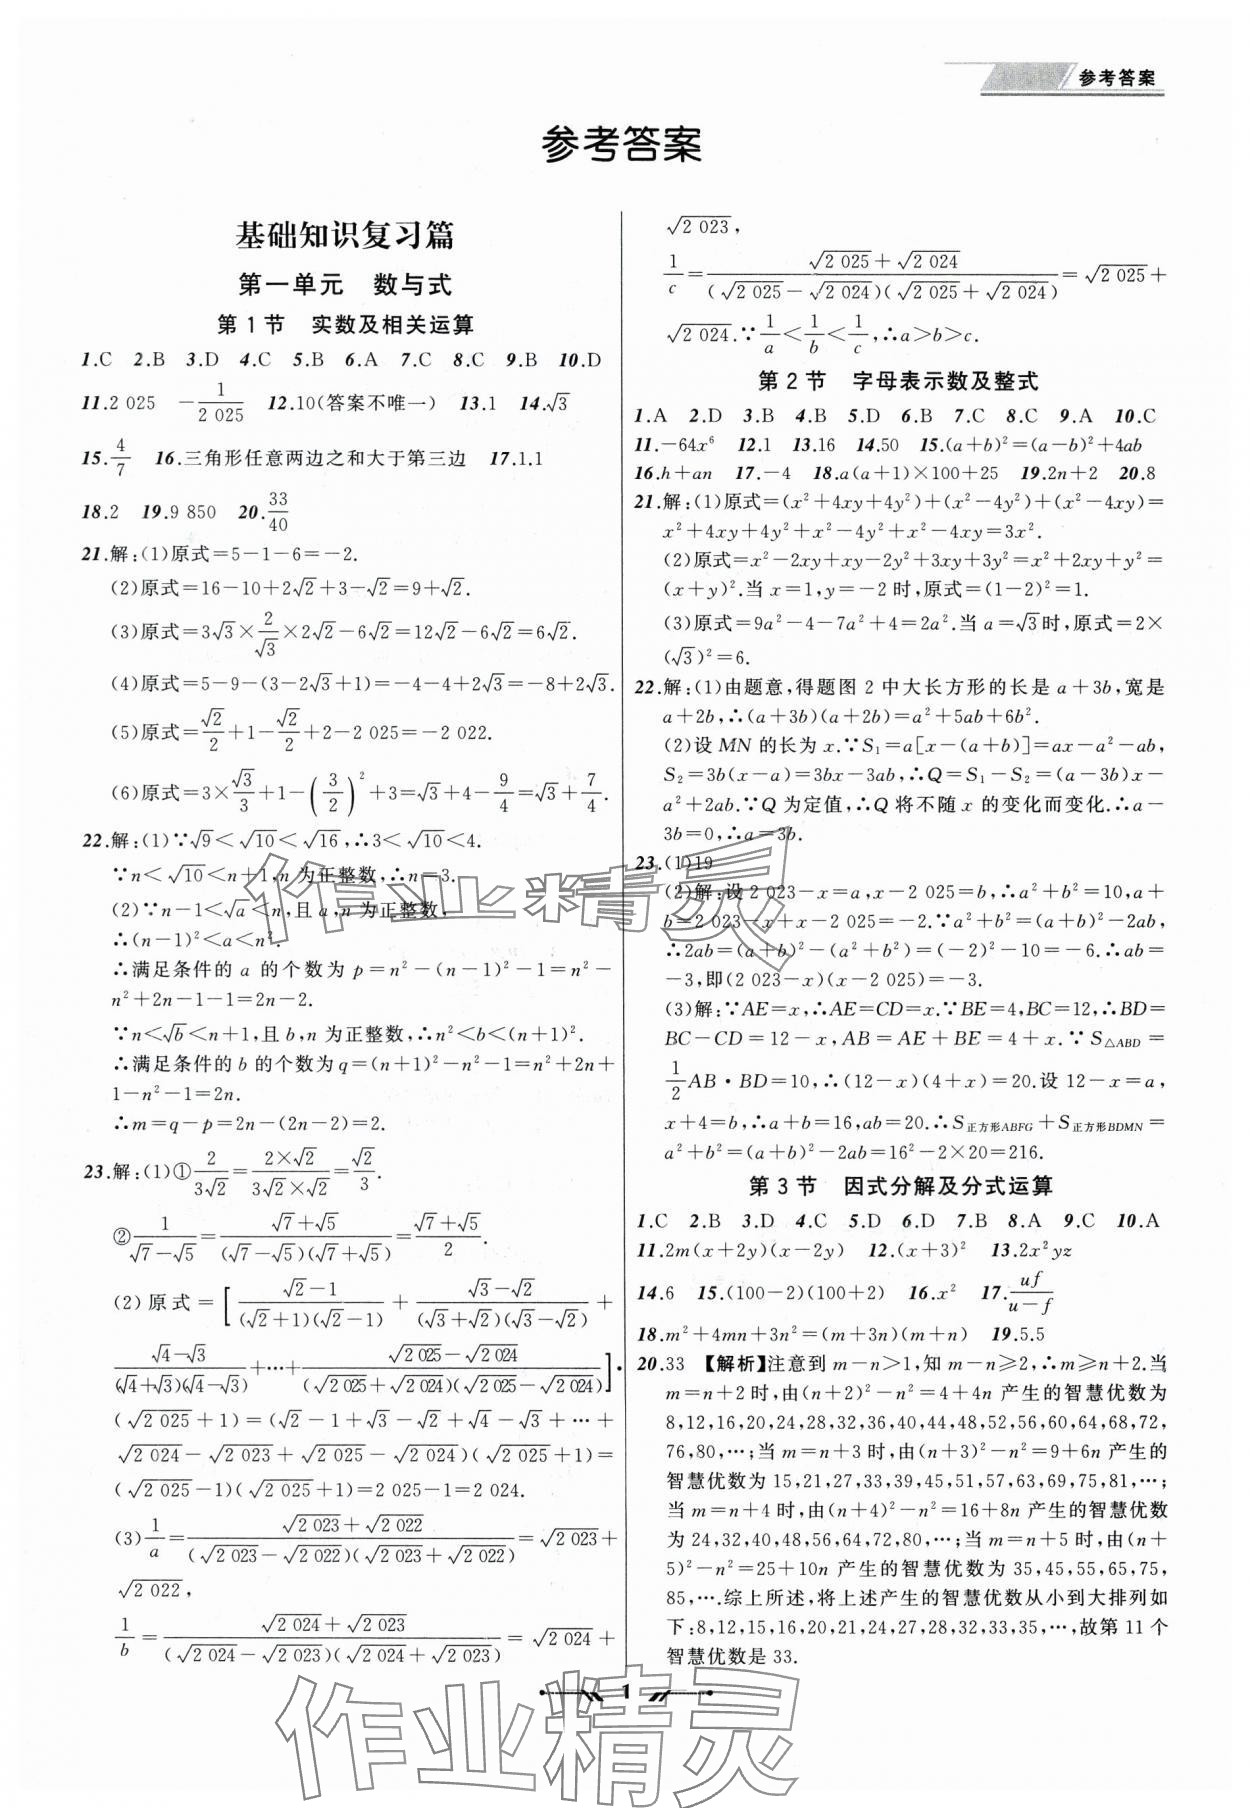 参考答案
参考答案
基础知识复习篇
第一单元 数与式
第1节 实数及相关运算
1.C 2.B 3.D 4.C 5.B 6.A 7.C 8.C 9.B 10.D
11.2 025 -1/2 025 12.10(答案不唯一) 13.1 14.√3
15.4/7 16.三角形任意两边之和大于第三边 17.1.1
18.2 19.9 850 20.33/40
21.解:(1)原式=5-1-6=-2.
(2)原式=16-10+2√2+3-√2=9+√2.
(3)原式=3√3×2/√3×2√2-6√2=12√2-6√2=6√2.
(4)原式=5-9-(3-2√3+1)=-4-4+2√3=-8+2√3.
(5)原式=√2/2+1-√2/2+2-2 025=-2 022.
(6)原式=3×√3/3+1-(3/2)²+3=√3+4-9/4=√3+7/4.
22.解:(1)∵√9<√10<√16,∴3<√10<4.
∵n<√10<n+1,n 为正整数,∴n=3.
(2)∵n-1<√a<n,且a,n 为正整数,
∴(n-1)²<a<n².
∴满足条件的 a 的个数为 p=n²-(n-1)²-1=n²-
n²+2n-1-1=2n-2.
∵n<√b<n+1,且 b,n 为正整数,∴n²<b<(n+1)².
∴满足条件的 b 的个数为 q=(n+1)²-n²-1=n²+2n+
1-n²-1=2n.
∴m=q-p=2n-(2n-2)=2.
23.解:(1)①2/3√2=2×√2/3√2×√2=√2/3.
②1/(√7-√5)=(√7+√5)/(√7-√5)(√7+√5)=(√7+√5)/2.
(2)原式=[(√2-1)/(√2+1)(√2-1)+(√3-√2)/(√3+√2)(√3-√2)+
(√4-√3)/(√4+√3)(√4-√3)+…+(√2 025-√2 024)/(√2 025+√2 024)(√2 025-√2 024)]·
(√2 025+1)=(√2-1+√3-√2+√4-√3+…+
√2 024-√2 023+√2 025-√2 024)(√2 025+1)=
(√2 025-1)(√2 025+1)=2 025-1=2 024.
(3)1/a=(√2 023+√2 022)/(√2 023-√2 022)(√2 023+√2 022)=√2 023+
√2 022,
1/b=(√2 024+√2 023)/(√2 024-√2 023)(√2 024+√2 023)=√2 024+
√2 023,
1/c=(√2 025+√2 024)/(√2 025-√2 024)(√2 025+√2 024)=√2 025+
√2 024.∵1/a<1/b<1/c,∴a>b>c.
第2节 字母表示数及整式
1.A 2.D 3.B 4.B 5.D 6.B 7.C 8.C 9.A 10.C
11.-64x⁶ 12.1 13.16 14.50 15.(a+b)²=(a-b)²+4ab
16.h+an 17.-4 18.a(a+1)×100+25 19.2n+2 20.8
21.解:(1)原式=(x²+4xy+4y²)+(x²-4y²)+(x²-4xy)=
x²+4xy+4y²+x²-4y²+x²-4xy=3x².
(2)原式=x²-2xy+xy-2y²+3xy+3y²=x²+2xy+y²=
(x+y)².当 x=1,y=-2 时,原式=(1-2)²=1.
(3)原式=9a²-4-7a²+4=2a².当 a=√3时,原式=2×
(√3)²=6.
22.解:(1)由题意,得题图 2 中大长方形的长是 a+3b,宽是
a+2b,∴(a+3b)(a+2b)=a²+5ab+6b².
(2)设 MN 的长为 x.∵S₁=a[x-(a+b)]=ax-a²-ab,
S₂=3b(x-a)=3bx-3ab,∴Q=S₁-S₂=(a-3b)x-
a²+2ab.∵Q 为定值,∴Q 将不随 x 的变化而变化.∴a-
3b=0,∴a=3b.
23.(1)19
(2)解:设 2 023-x=a,x-2 025=b,∴a²+b²=10,a+
b=2 023-x+x-2 025=-2.∵a²+b²=(a+b)²-2ab,
∴2ab=(a+b)²-(a²+b²)=(-2)²-10=-6.∴ab=
-3,即(2 023-x)(x-2 025)=-3.
(3)解:∵AE=x,∴AE=CD=x.∵BE=4,BC=12,∴BD=
BC-CD=12-x,AB=AE+BE=4+x.∵S△ABD=
1/2AB·BD=10,∴(12-x)(4+x)=20.设 12-x=a,
x+4=b,∴a+b=16,ab=20.∴S正方形ABFG+S正方形BDMN=
a²+b²=(a+b)²-2ab=16²-2×20=216.
第3节 因式分解及分式运算
1.C 2.B 3.D 4.C 5.D 6.D 7.B 8.A 9.C 10.A
11.2m(x+2y)(x-2y) 12.(x+3)² 13.2x²yz
14.6 15.(100-2)(100+2) 16.x² 17.uf/(u-f)
18.m²+4mn+3n²=(m+3n)(m+n) 19.5.5
20.33 【解析】注意到 m-n>1,知 m-n≥2,∴m≥n+2.当
m=n+2 时,由(n+2)²-n²=4+4n 产生的智慧优数为
8,12,16,20,24,28,32,36,40,44,48,52,56,60,64,68,72,
76,80,…;当 m=n+3 时,由(n+3)²-n²=9+6n 产生的
智慧优数为 15,21,27,33,39,45,51,57,63,69,75,81,…;
当 m=n+4 时,由(n+4)²-n²=16+8n 产生的智慧优数
为 24,32,40,48,56,64,72,80,…;当 m=n+5 时,由(n+
5)²-n²=25+10n 产生的智慧优数为 35,45,55,65,75,
85,….综上所述,将上述产生的智慧优数从小到大排列如
下:8,12,15,16,20,21,24,27,28,32,33,35,…,故第 11 个
智慧优数是 33.
1
作业精灵
作业精灵